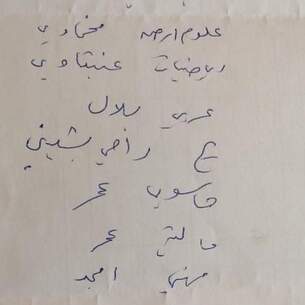 علوم ارض مخماوي
رياضيات عنبتاوي
عربي بلال
ع راضي بشيني
حاسوب عمر
مالية عمر
مهني امجد